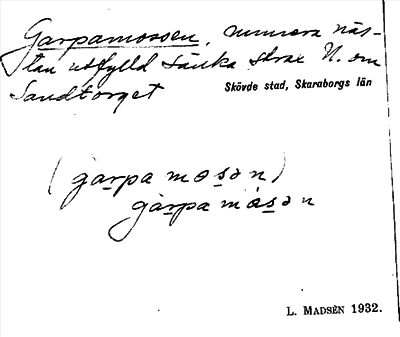 Garpamossen, numera näs-
tan utfylld sänka strax N. om
Sandtorget
Skövde stad, Skaraborgs län
(garpa mosən)
gàrpa màsən
L. MADSÉN 1932.